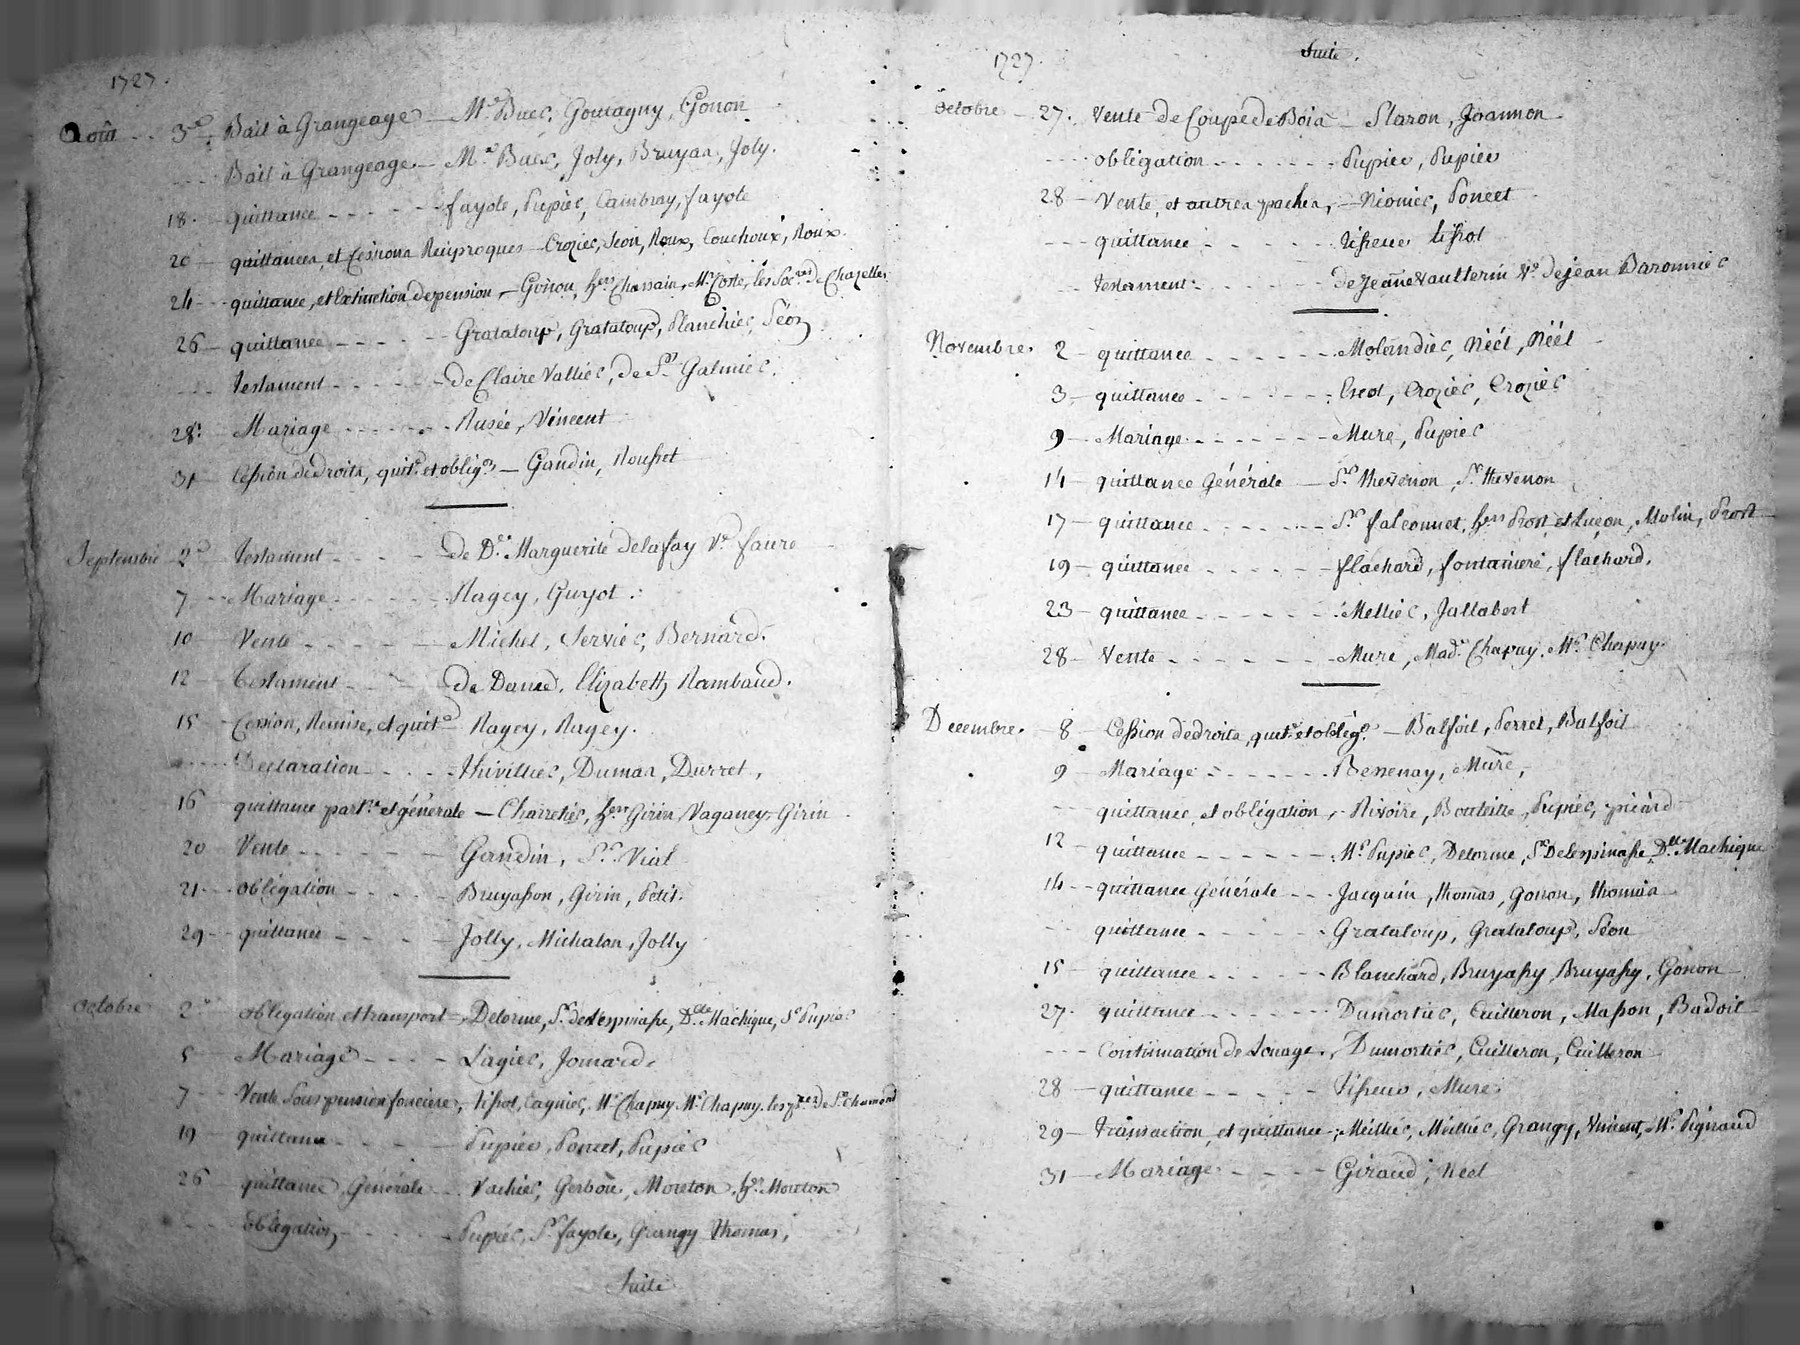 1727.
Août 3e Bail à Grangeage Me Buer, Goutagny, Gonon
Bail à Grangeage Me Buer, Joly, Bruyas, Joly.
18 quittance fayole, Pupier, Cambray, fayole
20 quittances, et Cessions Réciproques Crozier, Séon, Roux, Couchoux, Roux.
24 quittance, et Extinction de pension, Gonon, hers Chassain, Mr Coste, les Soc.res de Chazelles
26 quittance Grataloup, Grataloup, Planchier, Séon
testament de Claire Vallier, de St Galmier.
28 Mariage Rusée, Vincent
31 Cession de droits, quite et oblign Gaudin, Rousset
Septembre 2e testament de Dlle Marguerite delafay Ve faure
7 Mariage Ragey, Guyot.
10 Vente Michel, Servier, Bernard.
12 testament de Dame Elizabeth Rambaud.
15 Cession, Remise, et quite Ragey, Ragey.
Déclaration thivillier, Dumas, Durret,
16 quittance partre et générale Charretier, hers Girin, Vaganey, Girin
20 Vente Gaudin, Sr Vial
21 obligation Bruyasson, Girin, Petit.
29 quittance Jolly, Michalon, Jolly
octobre 2e obligation et transport Delorme, Sr delespinasse, Dlle Machique, Sr Pupier
5 Mariage Lagier, Jomard.
7 Vente Sous pension fonciere, tissot, Cagnier, Mr Chapuy, Mr Chapuy, les de St Chamond
19 quittance Pupier, Poncet, Pupier
26 quittance Générale Vachier, Gerbout, Moreton, hr Moreton
obligation Pupier, Sr fayole, Grangy, thomas,
Suite
1727.
Suite.
octobre 27. Vente de Coupe de Bois Slaron, Joannon
obligation Pupier, Pupier
28 Vente, et autres paches, Rionier, Poncet
quittance tisseur, tissot
testament de Jeanne Vaulterin Ve de jean Baronnier
Novembre. 2 quittance Molandier, Néél, Néél
3 quittance Escot, Crozier, Crozier
9 Mariage Mure, Pupier
14 quittance Générale Sr thevenon, Sr thevenon
17 quittance Sr falconnet, hers Prost et Luçon, Molin, Prost
19 quittance flachard, fontaniere, flachard,
23 quittance Mellier, Jallabert
28 Vente Mure, Made Chapuy, Mr Chapuy.
Decembre. 8 Cession de droits, quite et oblige Balfoit, Perret, Balfoit
9 Mariage Bessenay, Mure,
quittance et obligation, Rivoire, Bouteille, Pupier, picard
12 quittance Mr Pupier, Delorme, Sr Delespinasse, Dlle Machique
14 quittance générale Jacquin, thomas, Gonon, thomas
quittance Grataloup, Grataloup, Séon
15 quittance Blanchard, Bruyassy, Bruyassy, Gonon
27. quittance Dumortier, Cuilleron, Masson, Badoil
Continuation de Louage. Dumortier, Cuilleron, Cuilleron
28 quittance tisseur, Mure.
29 transaction, et quittance, Meillier, Meillier, Grangy, Vincent, Mr Pignaud
31 Mariage Giraud, Néél